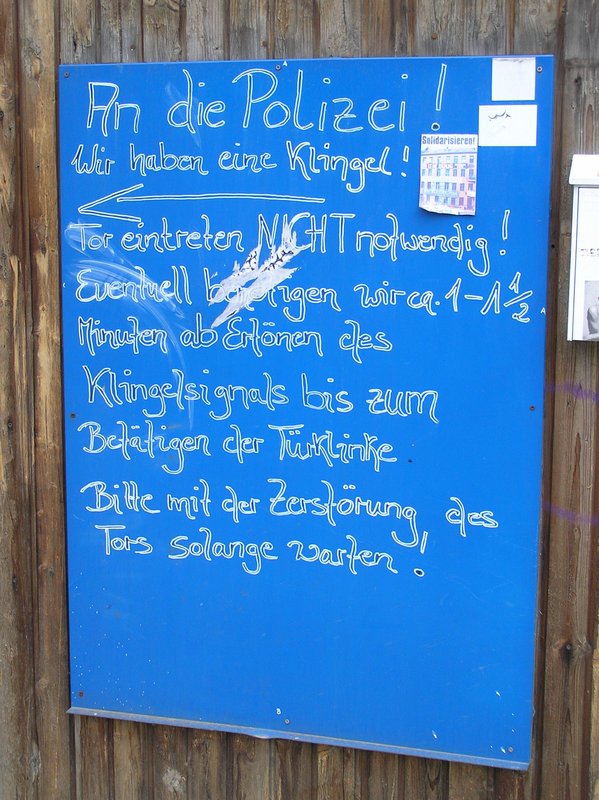 An die Polizei!
Solidarisieren!
Wir haben eine Klingel!
Tor eintreten NICHT notwendig!
Eventuell benötigen wir ca. 1-1 1/2
Minuten ab Ertönen des
Klingelsignals bis zum
Betätigen der Türklinke
Bitte mit der Zerstörung des
Tors solange warten!